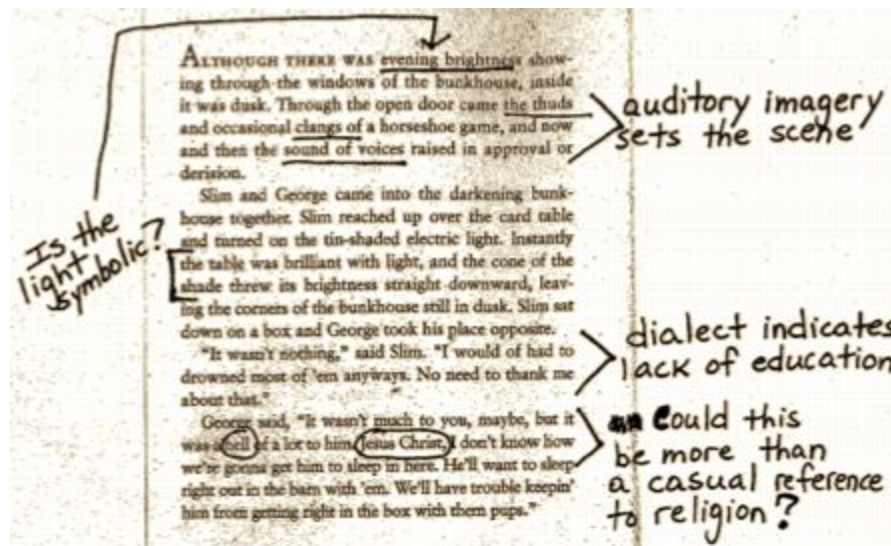 ALTHOUGH THERE WAS evening brightness show-
ing through the windows of the bunkhouse, inside
it was dusk. Through the open door came the thuds
and occasional clangs of a horseshoe game, and now
and then the sound of voices raised in approval or
derision.
Slim and George came into the darkening bunk-
house together. Slim reached up over the card table
and turned on the tin-shaded electric light. Instantly
the table was brilliant with light, and the cone of the
shade threw its brightness straight downward, leav-
ing the corners of the bunkhouse still in dusk. Slim sat
down on a box and George took his place opposite.
"It wasn't nothing," said Slim. "I would of had to
drowned most of 'em anyways. No need to thank me
about that."
George said, "It wasn't much to you, maybe, but it
was a hell of a lot to him. Jesus Christ, I don't know how
we're gonna get him to sleep in here. He'll want to sleep
right out in the barn with 'em. We'll have trouble keepin'
him from getting right in the box with them pups."
Is the
light
symbolic?
auditory imagery
sets the scene
dialect indicates
lack of education
Could this
be more than
a casual reference
to religion?